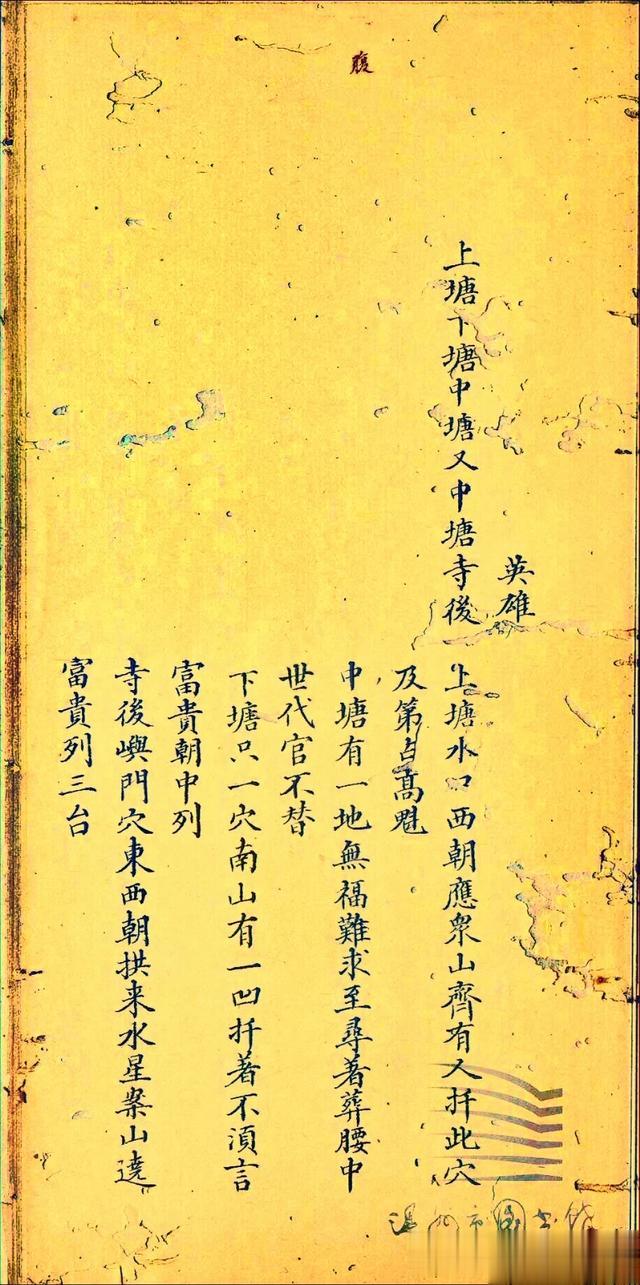 腹
英雄
上塘下塘中塘又中塘寺後
上塘水口西朝應衆山齊有人扦此穴
及第占高魁
中塘有一地無福難求至尋著葬腰中
世代官不替
下塘只一穴南山有一凹扦著不須言
富貴朝中列
寺後嶼門穴東西朝拱来水星案山遶
富貴列三台
温州市图书馆